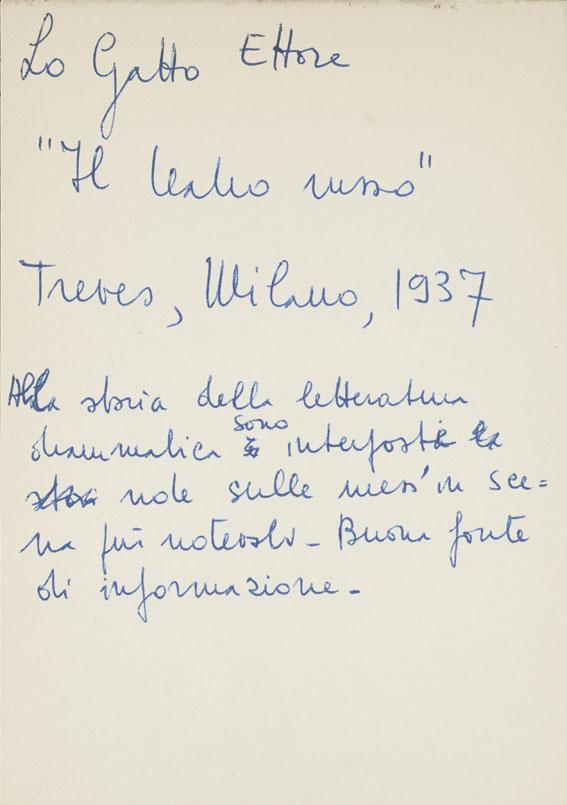 Lo Gatto Ettore
"Il teatro russo"
Treves, Milano, 1937
Alla storia della letteratura
drammatica sono interposte
note sulle mess'in sce=
na più notevoli - Buona fonte
di informazione -